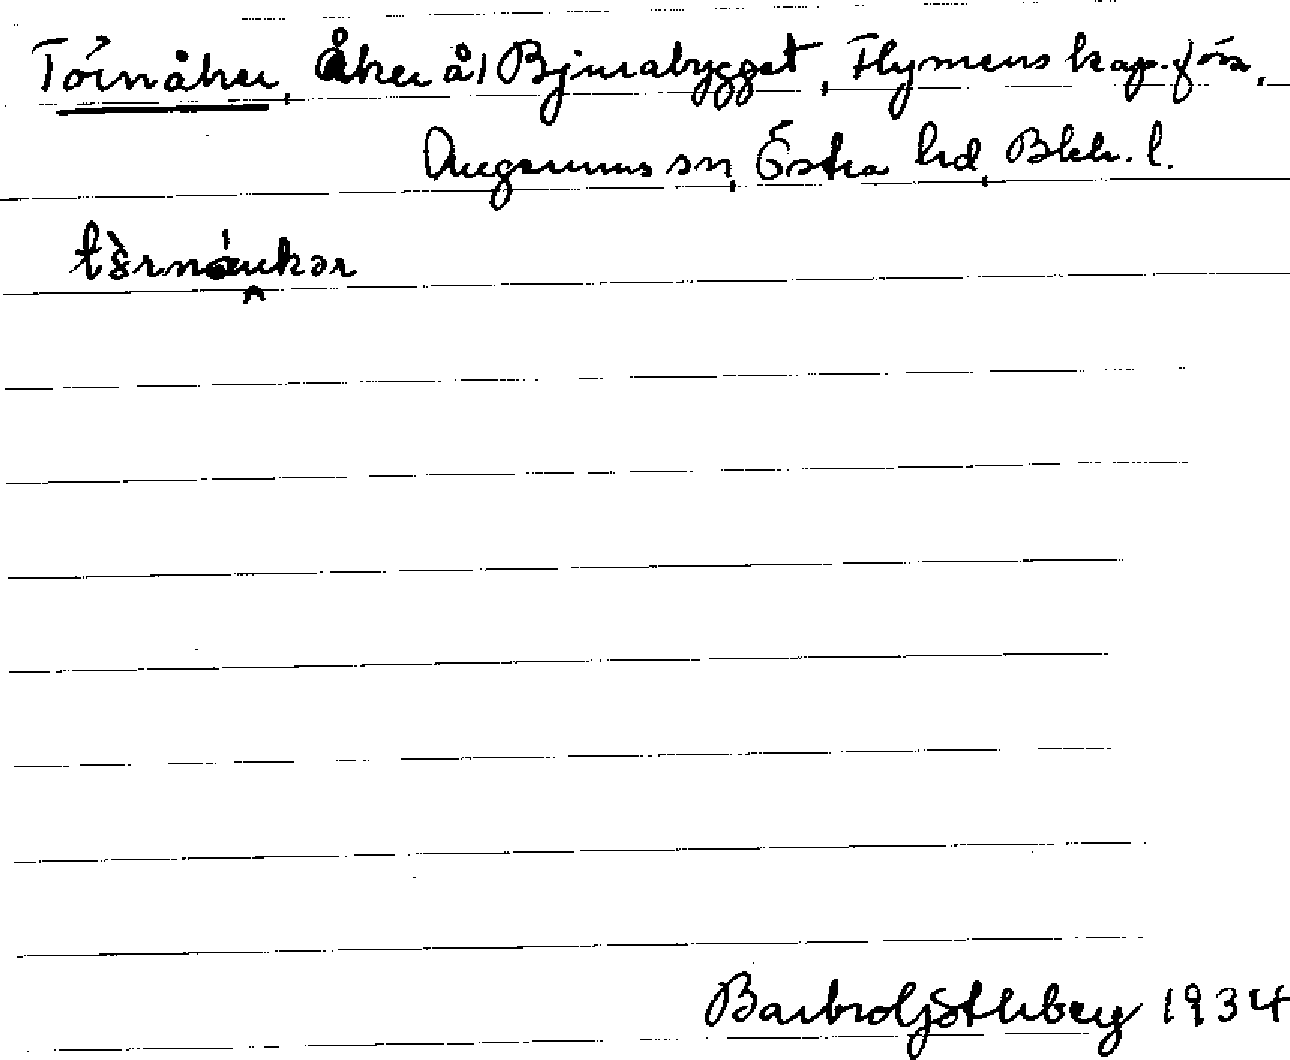 Törnåker, Åker å Bjurabygget, Flymens kap.förs.
Augerums sn, Östra hd, Blek. l.
Barbro Ljstleberg 1934